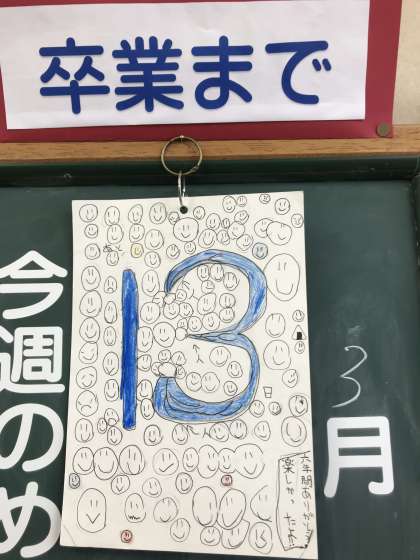 卒業まで
今週のめ
あと
13
日
3月
六年間ありがとう
楽しかったよ!